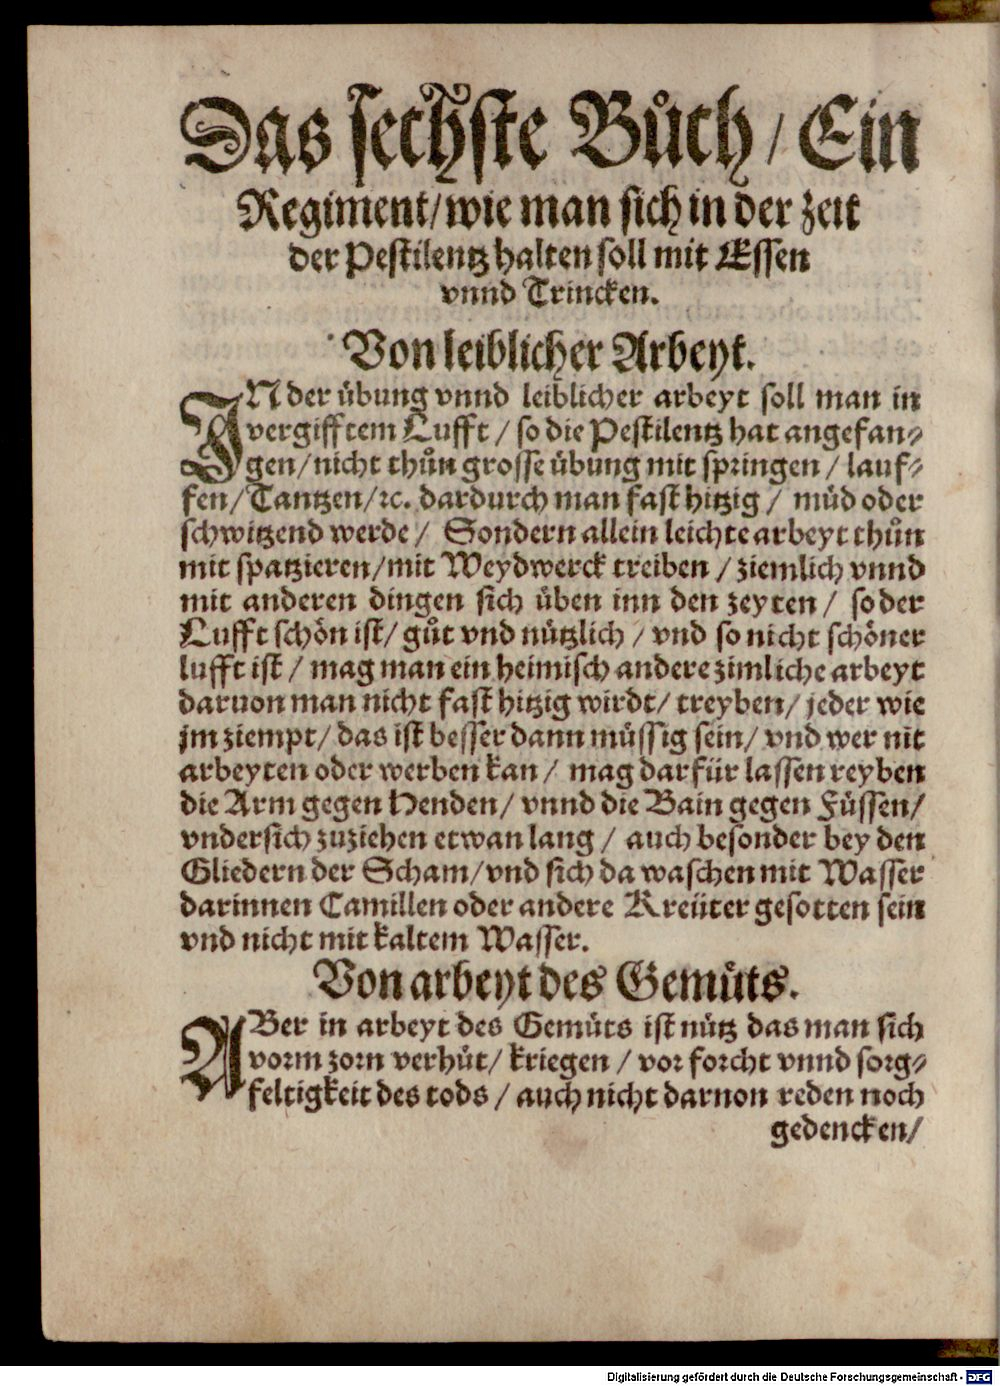 Das sechste Bůch / Ein
Regiment / wie man sich in der zeit
der Pestilentz halten soll mit Essen
vnnd Trincken.
Von leiblicher Arbeyt.
IN der übung vnnd leiblicher arbeyt soll man in
vergifftem Lufft / so die Pestilentz hat angefan-
gen / nicht thůn grosse übung mit springen / lauf-
fen / Tantzen / ꝛc. dardurch man fast hitzig / müd oder
schwitzend werde / Sondern allein leichte arbeyt thůn
mit spatzieren / mit Weydwerck treiben / ziemlich vnnd
mit anderen dingen sich üben inn den zeyten / so der
Lufft schön ist / gůt vnd nützlich / vnd so nicht schöner
lufft ist / mag man ein heimisch andere zimliche arbeyt
daruon man nicht fast hitzig wirdt / treyben / jeder wie
jm ziempt / das ist besser dann müssig sein / vnd wer nit
arbeyten oder werben kan / mag darfür lassen reyben
die Arm gegen Henden / vnnd die Bain gegen Füssen /
vndersich zuziehen etwan lang / auch besonder bey den
Gliedern der Scham / vnd sich da waschen mit Wasser
darinnen Camillen oder andere Kreüter gesotten sein
vnd nicht mit kaltem Wasser.
Von arbeyt des Gemüts.
ABer in arbeyt des Gemüts ist nütz das man sich
vorm zorn verhüt / kriegen / vor forcht vnnd sorg-
feltigkeit des tods / auch nicht darnon reden noch
gedencken /
Digitalisierung gefördert durch die Deutsche Forschungsgemeinschaft - DFG